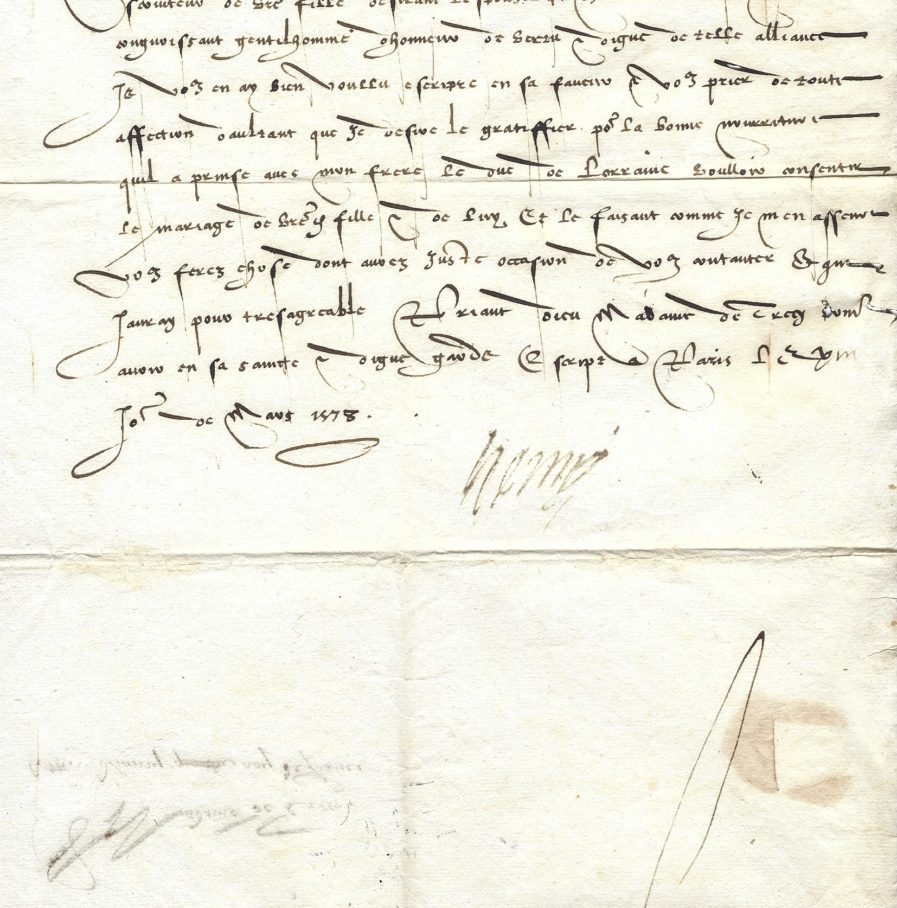 serviteur de vre fille desirant lespouser
congnoissant gentilhomme dhonneur de vertu & digne de telle alliance
Je vos en ay bien voullu escripre en sa faveur & vos prier de toute
affection daultant que Je desire le gratiffier por la bonne nourriture
quil a prinse avec mon frere le duc de Lorraine voulloir consentir
le mariage de vred fille & de luy Et le faisant comme Je men asseure
vos ferez chose dont aurez Juste occasion de vos contanter & que
Jauray pour tresagreable Priant dieu Madame de Crecy vous
avoir en sa saincte & digne garde Escript a Paris le xiii
Jor de Mars 1578.
Henry